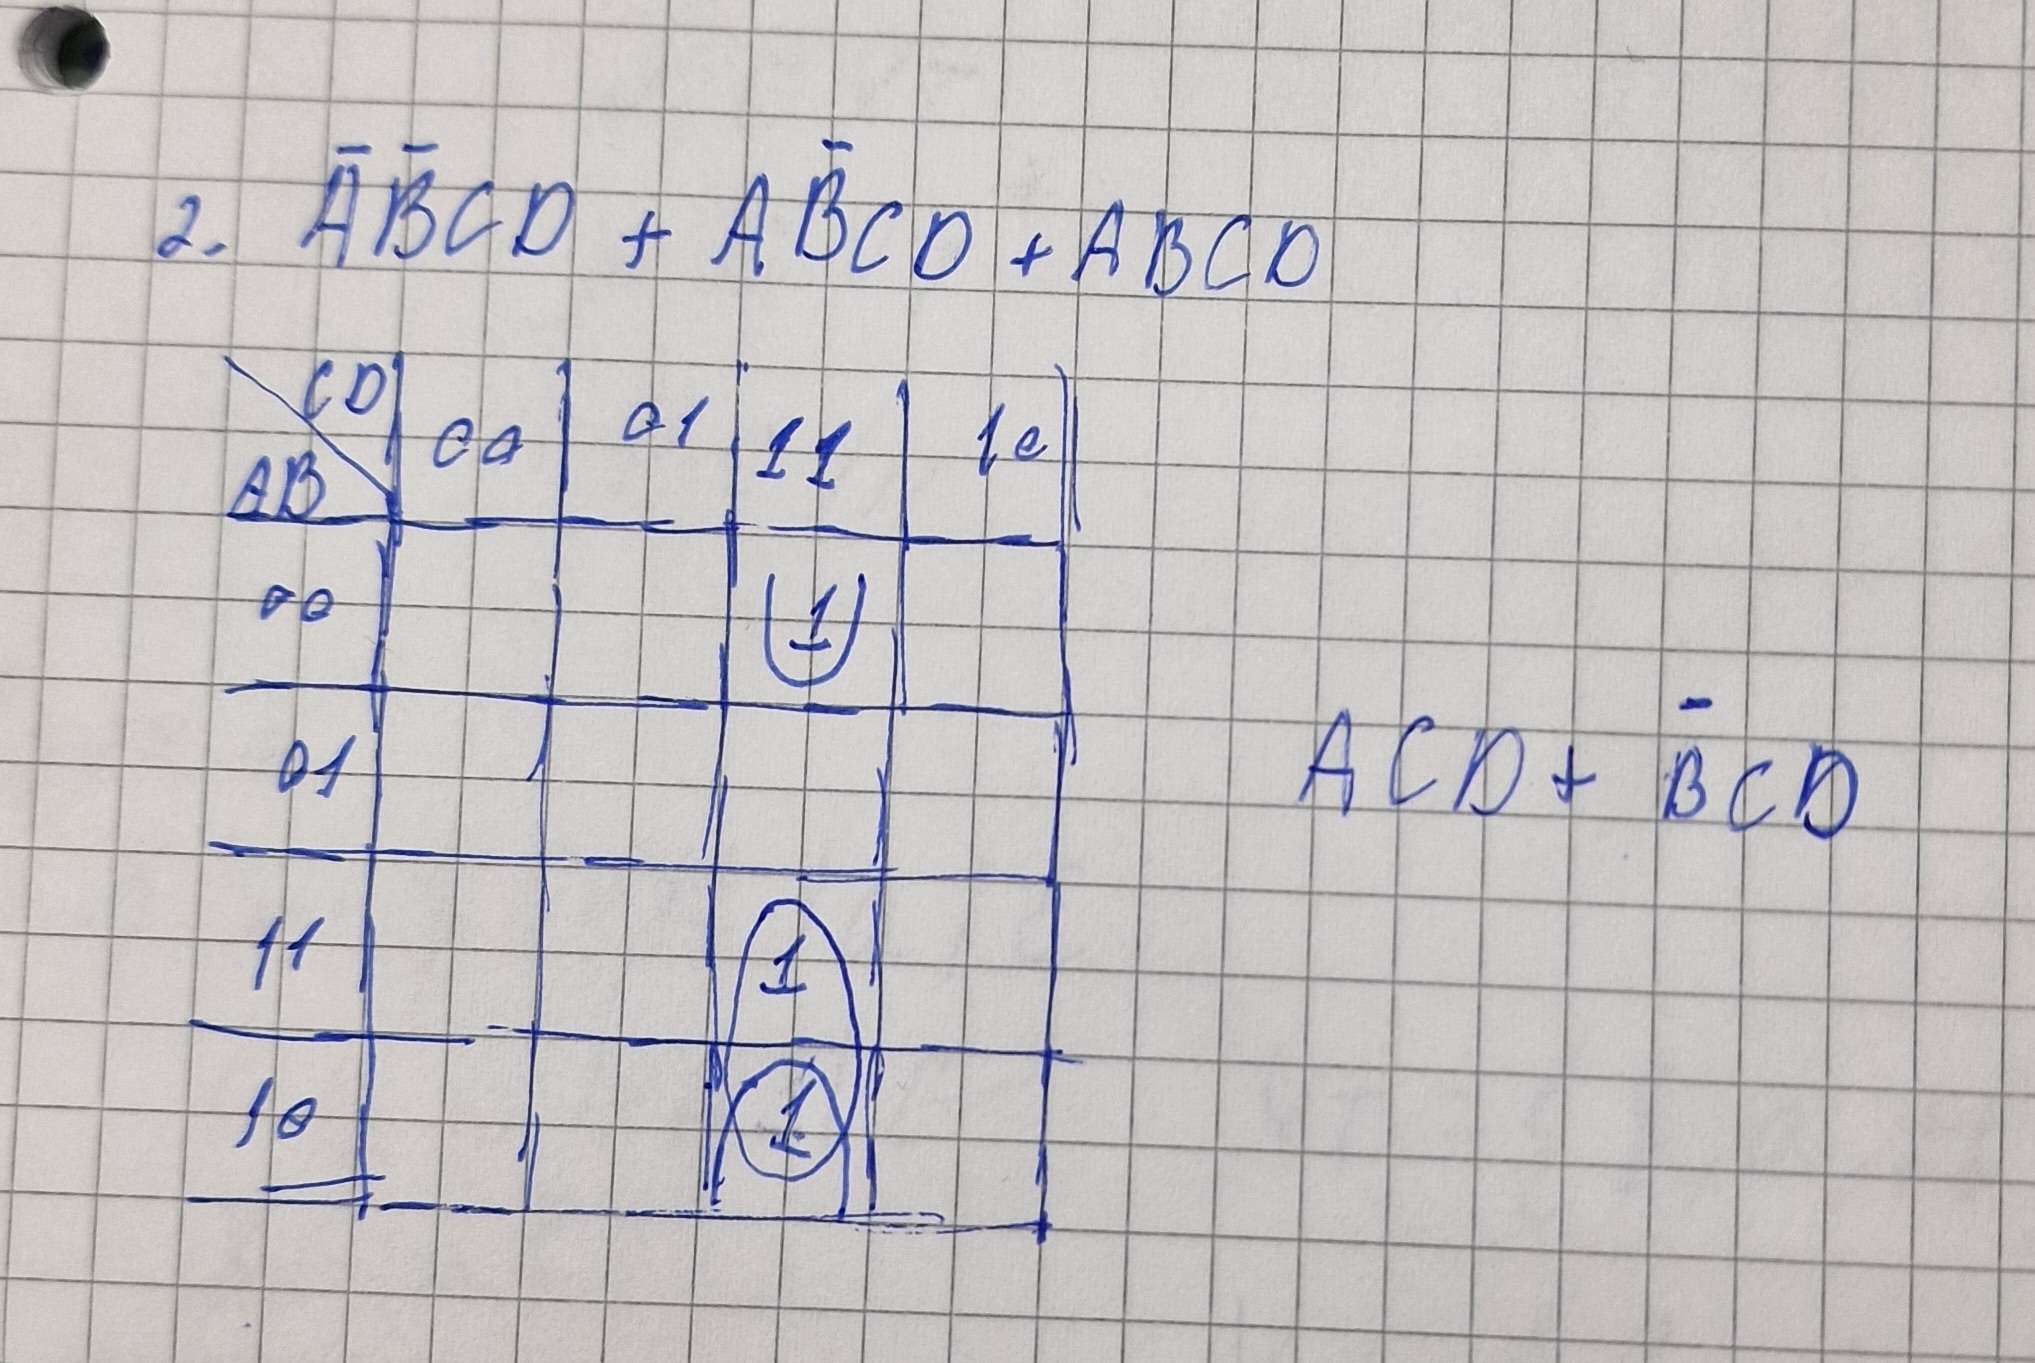 2. A̅ B̅ C D + A B̅ C D + A B C D
CD
AB 00 01 11 10
00 1
01
11 1
10 1
A C D + B̅ C D